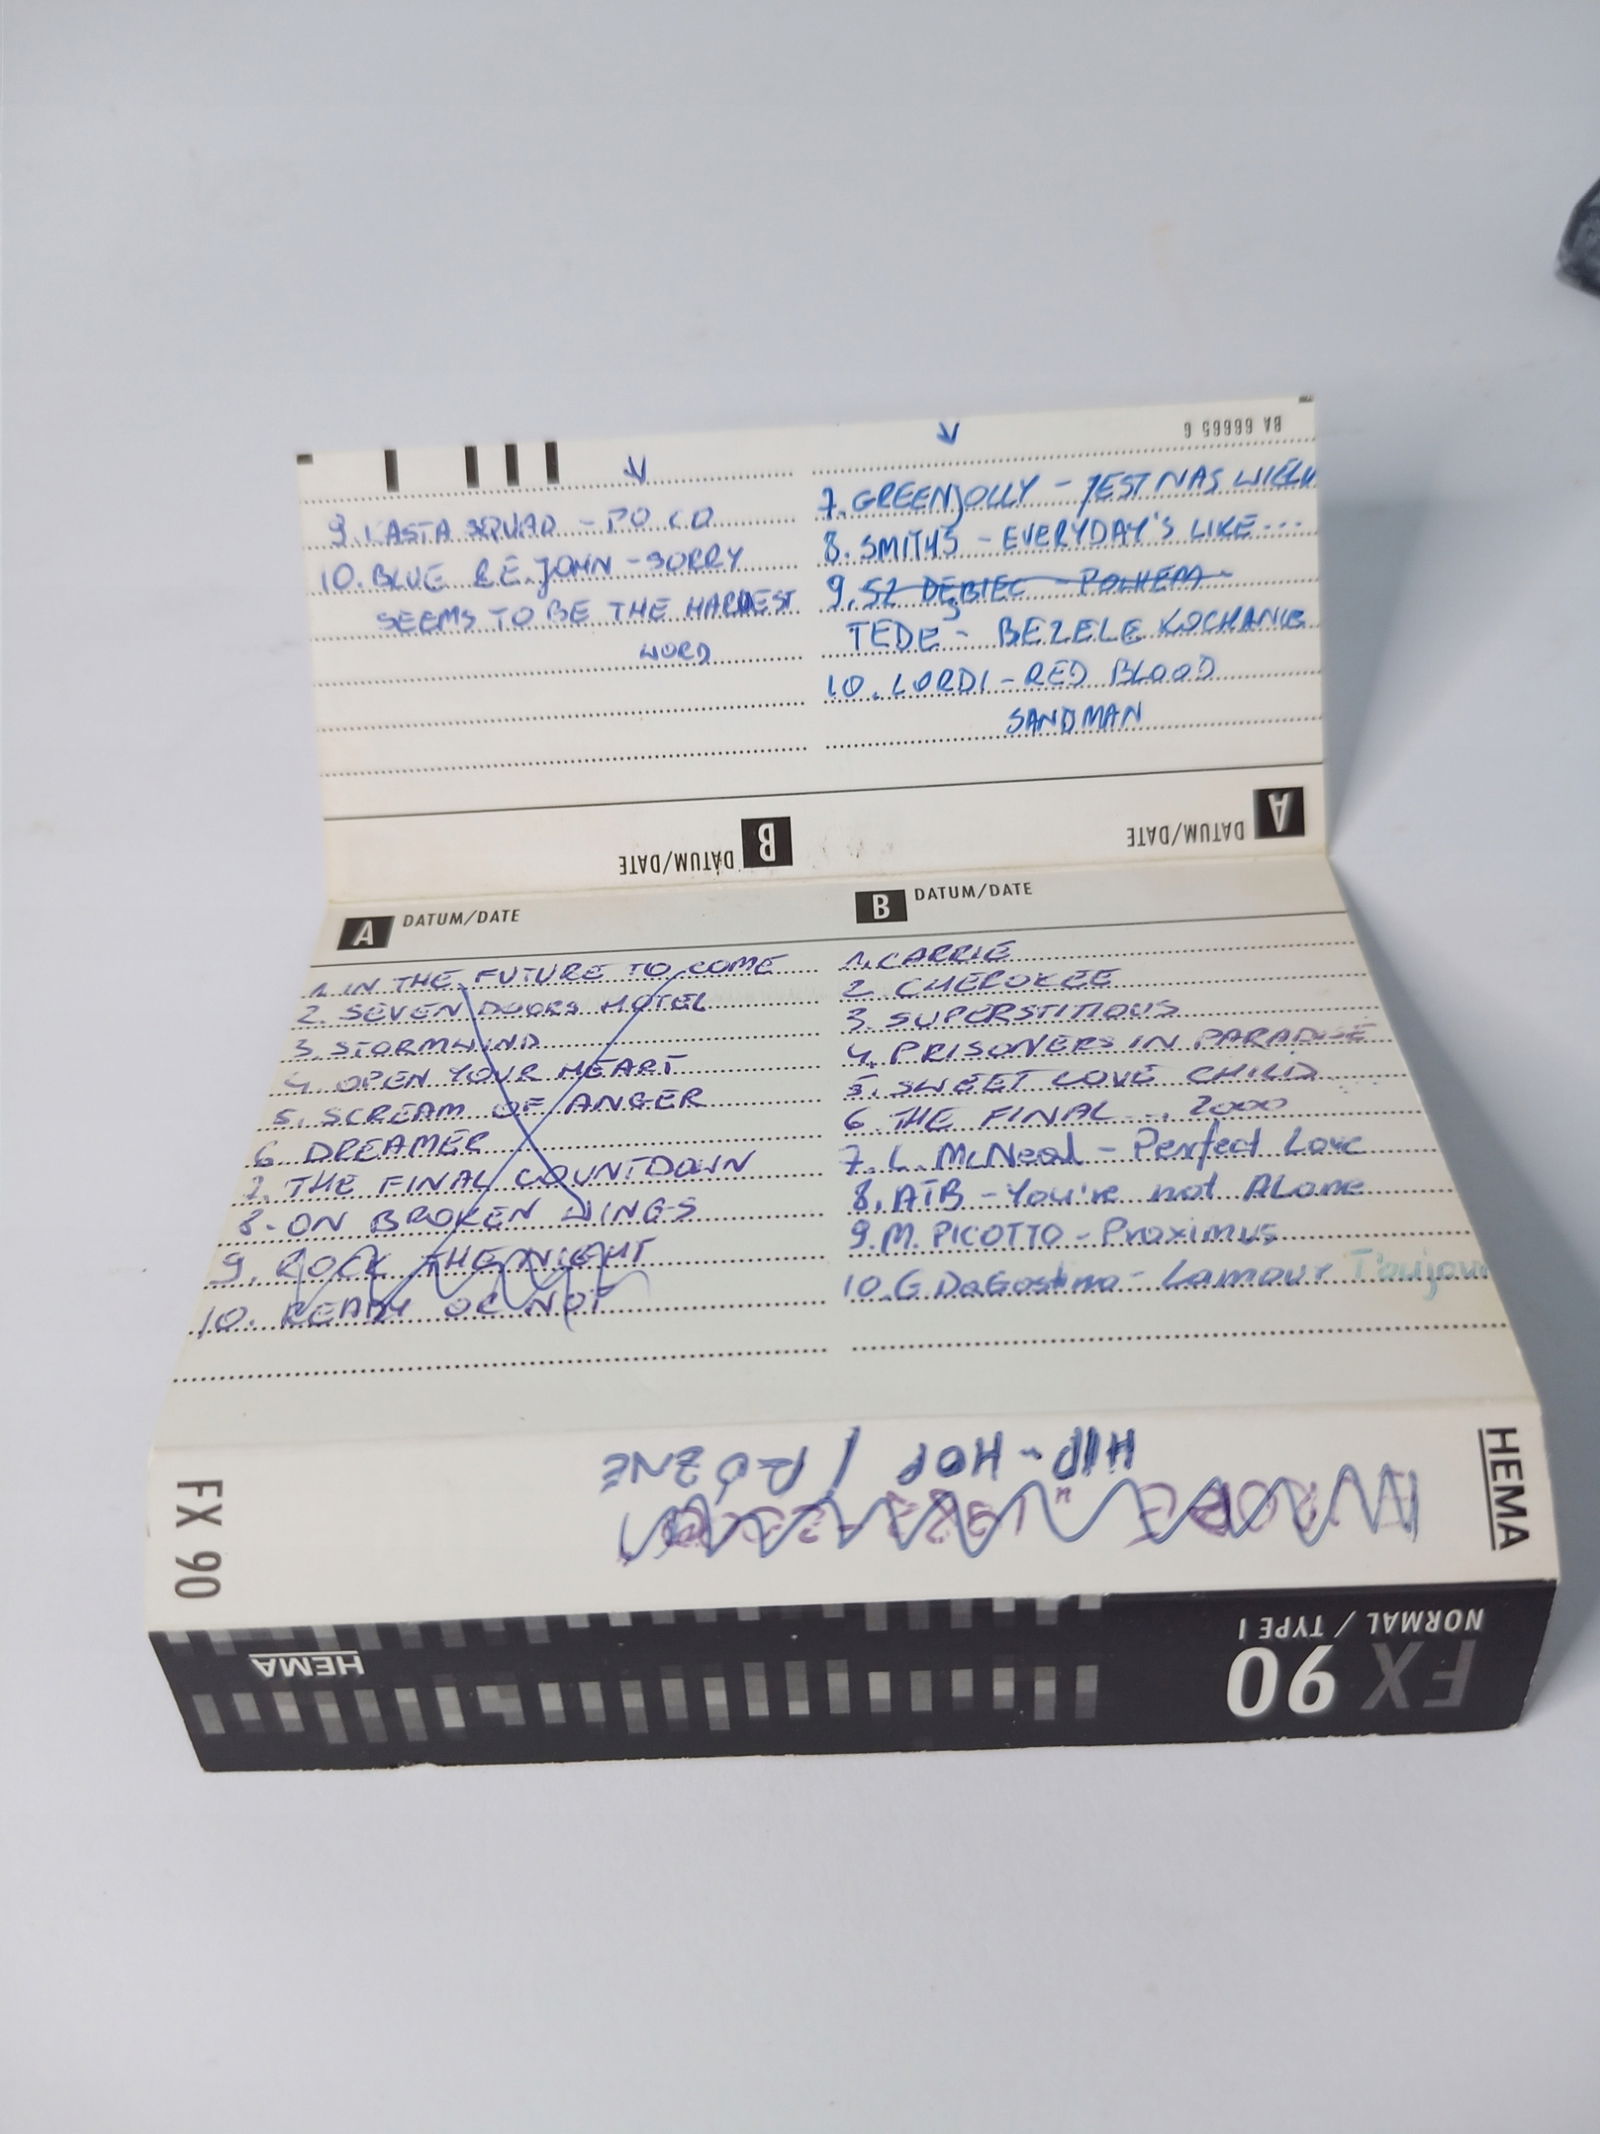 BA 66665 6
9. KASTA SQUAD - PO CO
10. BLUE & E. JOHN - SORRY
SEEMS TO BE THE HARDEST
WORD
7. GREENJOLLY - JEST NAS WIELU
8. SMITHS - EVERYDAY'S LIKE...
9. 52 DĘBIEC - POLHEPA
TEDE - BEZELE KOCHANIE
10. LORDI - RED BLOOD
SANDMAN
B DATUM/DATE
A DATUM/DATE
A DATUM/DATE
1. IN THE FUTURE TO COME
2. SEVEN DOORS HOTEL
3. STORMWIND
4. OPEN YOUR HEART
5. SCREAM OF ANGER
6. DREAMER
7. THE FINAL COUNTDOWN
8. ON BROKEN WINGS
9. ROCK THE NIGHT
10. READY OR NOT
B DATUM/DATE
1. CARRIE
2. CHEROKEE
3. SUPERSTITIOUS
4. PRISONERS IN PARADISE
5. SWEET LOVE CHILD
6. THE FINAL ... 2000
7. L. McNeal - Perfect Love
8. ATB - You're not ALone
9. M. PICOTTO - Proximus
10. G DaGostino - Lamour Toujour
HIP-HOP / RÓŻNE
EUROPE
FX 90
HEMA
HEMA
FX 90
NORMAL / TYPE I